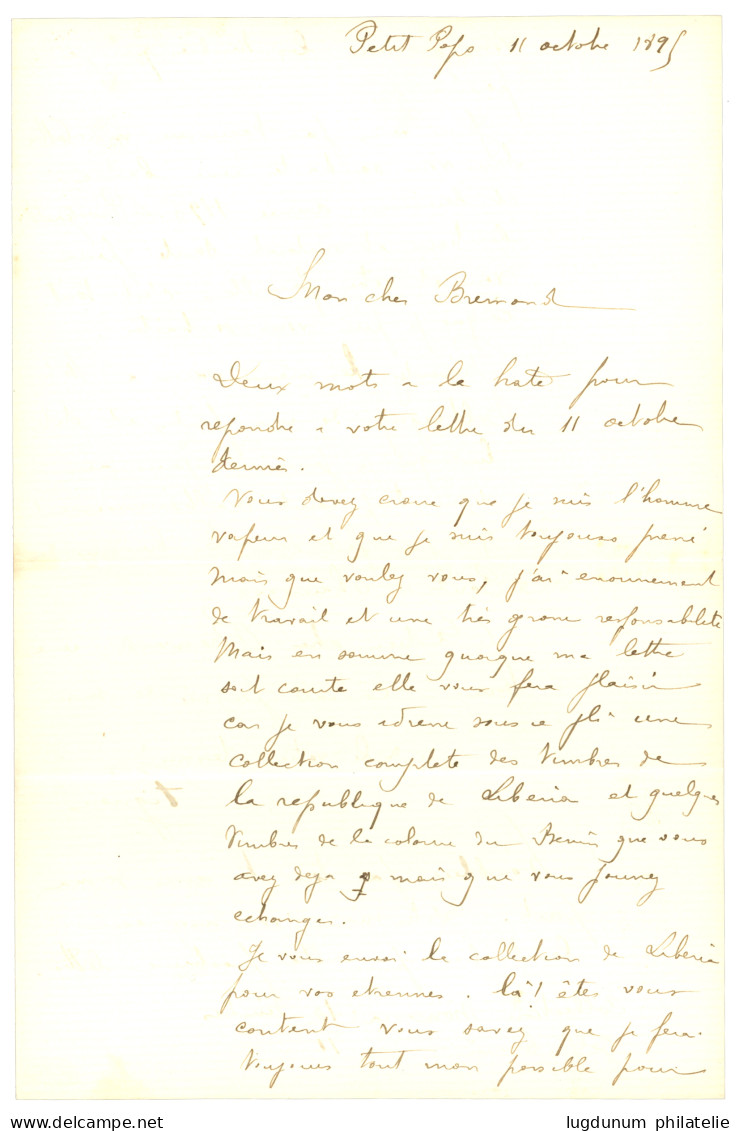 Petit Popo 11 octobre 1895
Mon cher Bremond
Deux mots a la hate pour
repondre a votre lettre du 11 octobre
dernier.
Vous devez croire que je suis l'homme
vapeur et que je suis toujours pressé
mais que voulez vous, j'ai enormement
de travail et une très grosse responsabilité
Mais en somme quoique ma lettre
soit courte elle vous fera plaisir
car je vous adresse sous ce pli une
collection complete des timbres de
la republique de Liberia et quelques
timbres de la colonie du Benin que vous
avez deja mais que vous pourrez
echanger.
Je vous envoi la collection de Liberia
pour vos etrennes. là! êtes vous
content vous savez que je ferai
toujours tout mon possible pour
lugdunum philatelie